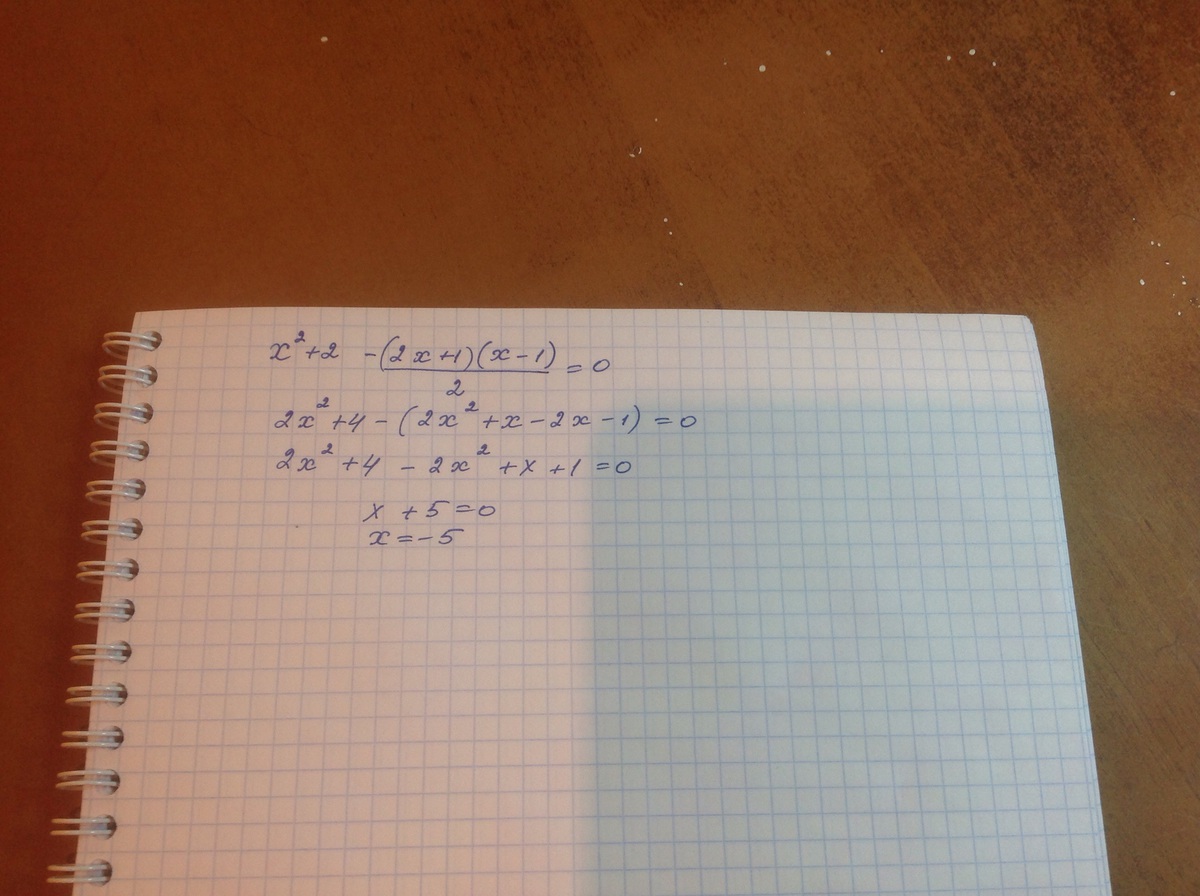 x² + 2 - (2x + 1)(x - 1)/2 = 0
2x² + 4 - (2x² + x - 2x - 1) = 0
2x² + 4 - 2x² + x + 1 = 0
x + 5 = 0
x = -5